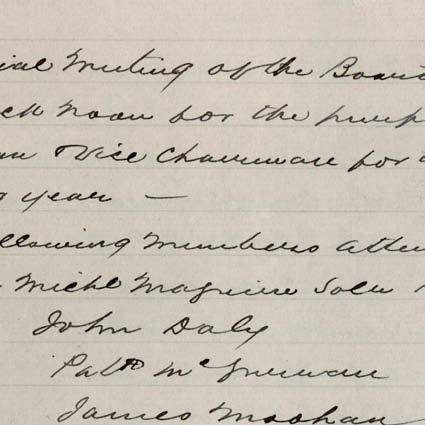 ial Meeting of the Board
ck noon for the purp
an & Vice Chairman for
year —
llowing Members atten
Michl Maguire Solr
John Daly
Patk McGurman
James Moohan